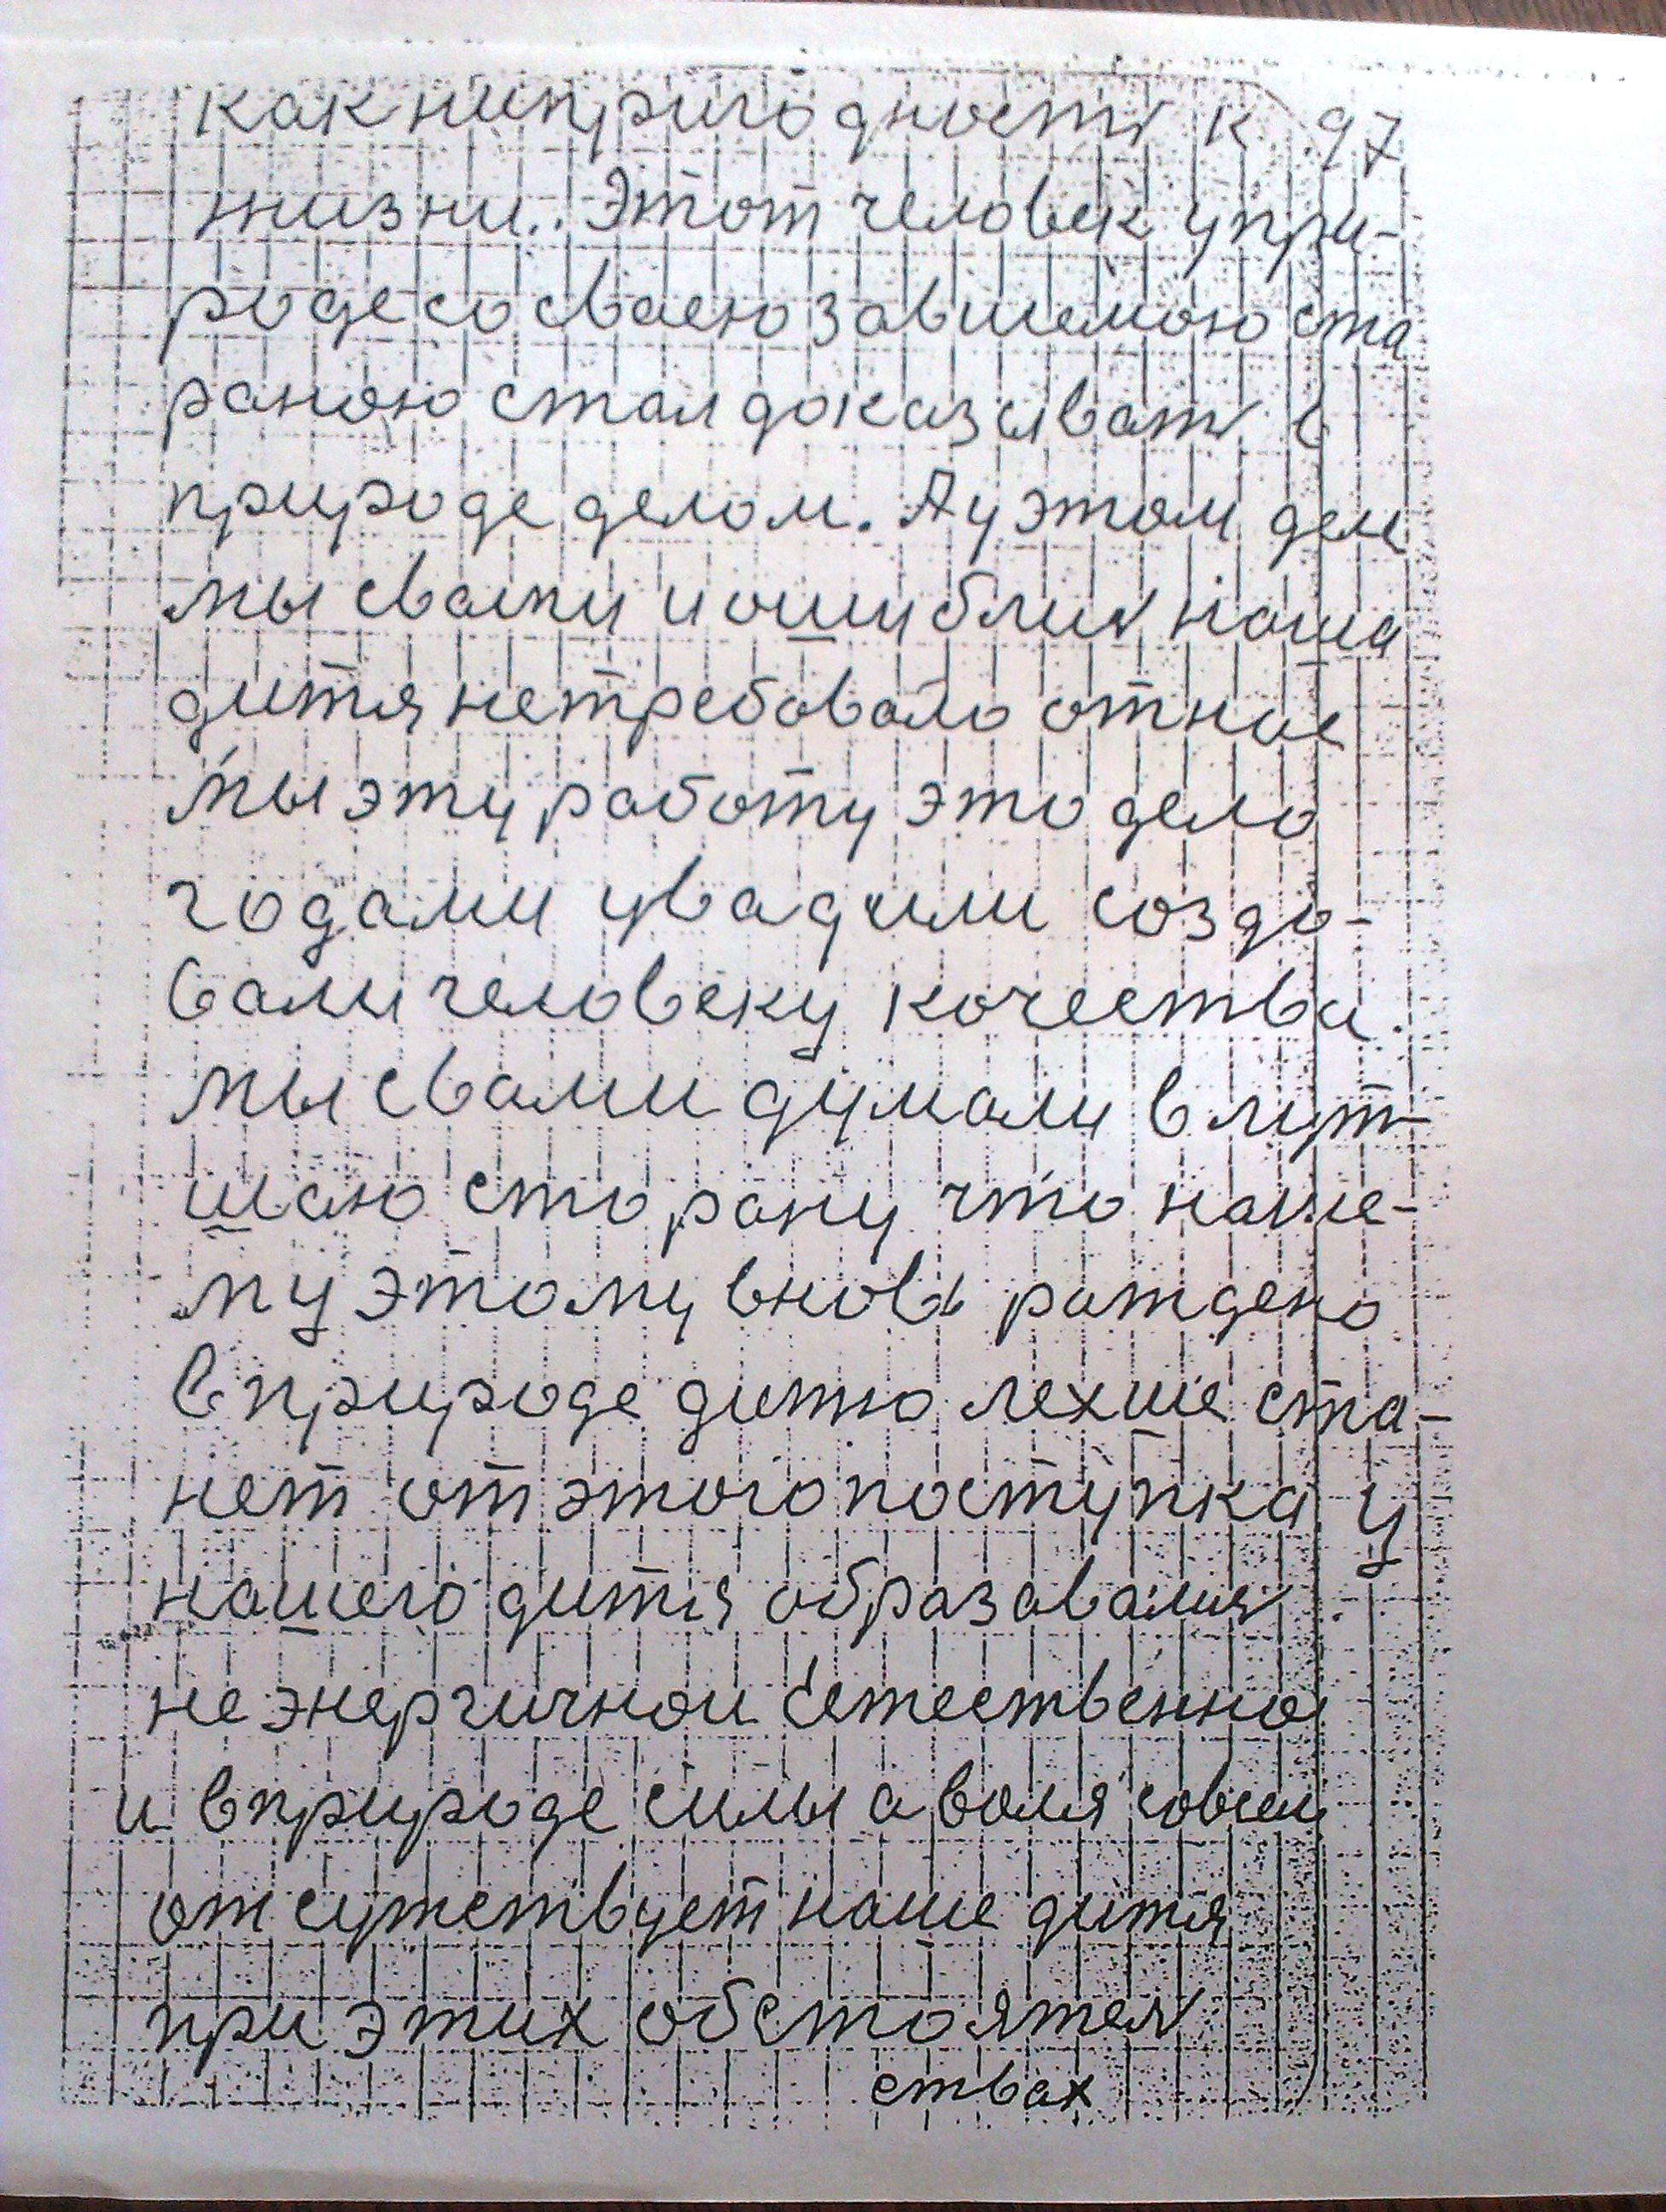 как нипригодность к 97
жизни.. Этот человек упри-
роде со сваею завшемою ста
раною стал доказывать в
природе делом. А у этом деле
мы свами и ошублись наша
дитя нетребовало от нас
мы эту работу это дело
годами увадили создо-
вали человеку качества.
мы свами думали в лут-
шаю сторану что наше-
му этому вновь раждено
в природе дитю лехше ста-
нет от этого поступка у
нашего дитя образавались
не энергичнои Естественно
и в природе силы а воля совсем
отсутствует наше дитя
при этих обстоятель
ствах